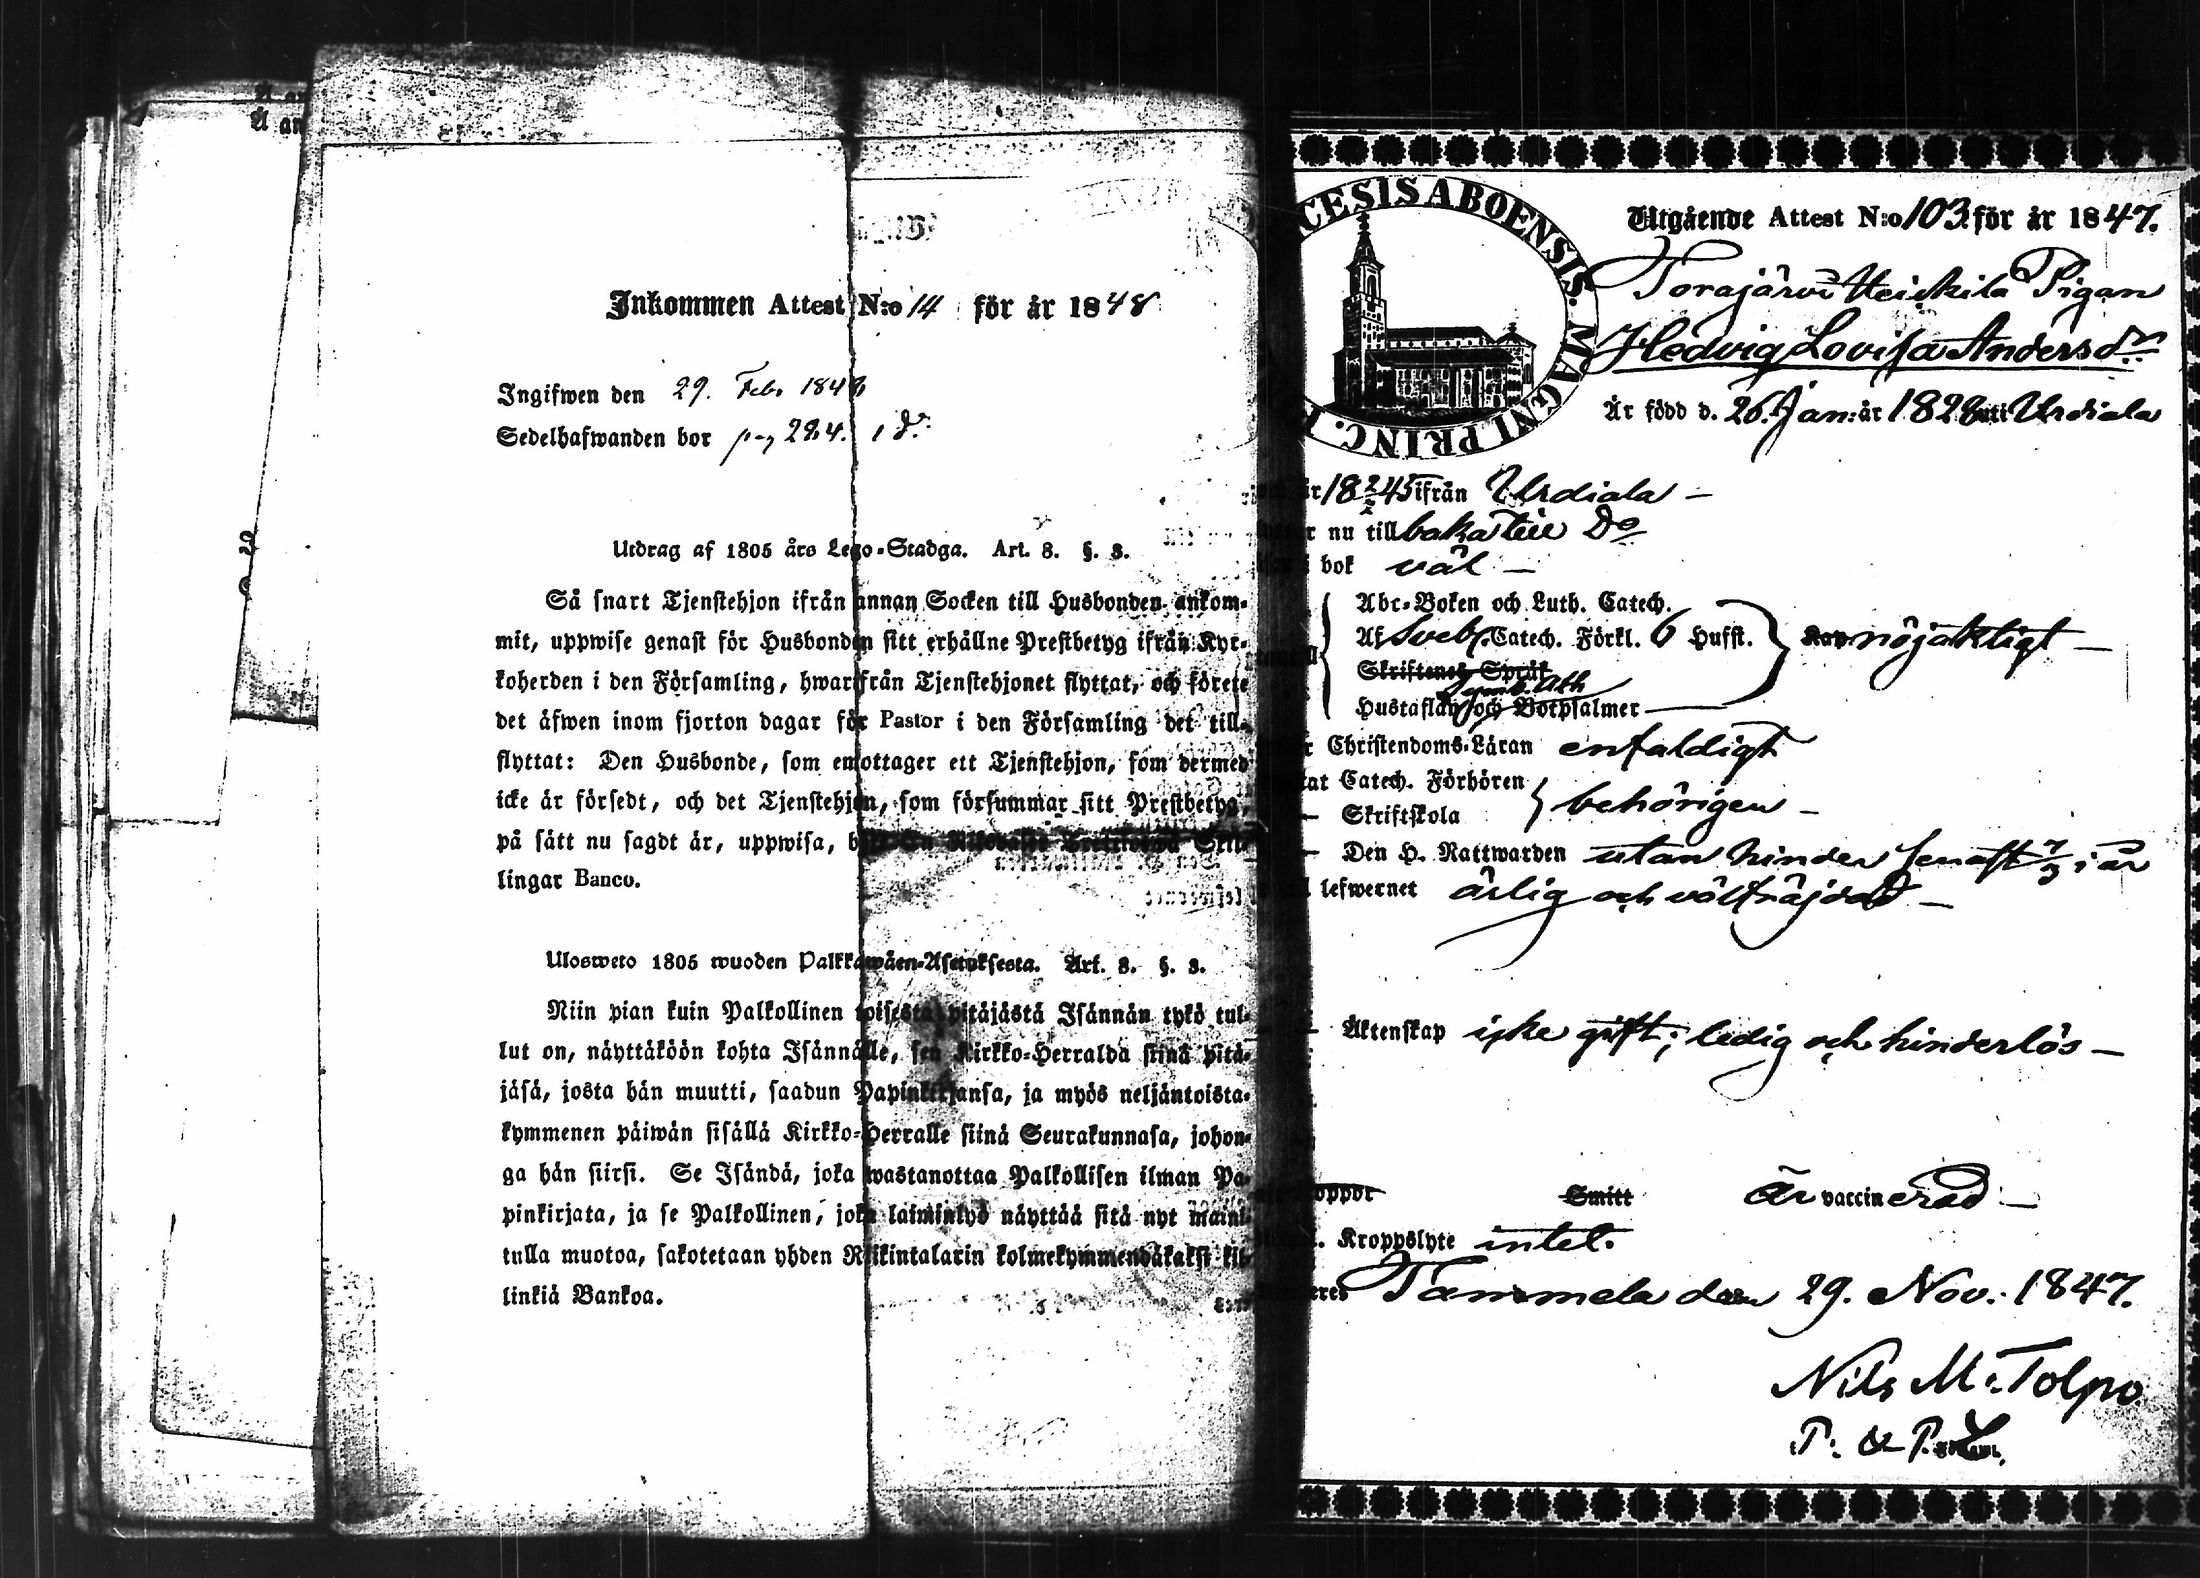 Inkommen Attest N:o 14 för år 1848
Ingifwen den 29. Feb. 1848
Sedelhafwanden bor pag 284.
Utdrag af 1805 års Lego-Stadga. Art. 8. §. 3.
Så snart Tjenstehjon ifrån annan Socken till Husbonden ankom-
mit, uppwise genast för Husbonden sitt erhållne Prestbetyg ifrån Kyr-
koherden i den Församling, hwarifrån Tjenstehjonet flyttat, och förete
det äfwen inom fjorton dagar för Pastor i den Församling det till-
flyttat: Den Husbonde, som emottager ett Tjenstehjon, som dermed
icke är försedt, och det Tjenstehjon, som försummar sitt Prestbetyg,
på sätt nu sagdt är, uppwisa,
lingar Banco.
Ulosweto 1805 wuoden Palkkawäen-Asetuksesta. Art. 8. §. 3.
Niin pian kuin Palkollinen toisesta pitäjästä Isännän tykö tul-
lut on, näyttäköön kohta Isännälle, sen Kirkko-Herralda siinä pitä-
jäsä, josta hän muutti, saadun Papinkirjansa, ja myös neljäntoista-
kymmenen päiwän sisällä Kirkko-Herralle siinä Seurakunnasa, johon-
ga hän siirsi. Se Isändä, joka wastanottaa Palkollisen ilman Pa-
pinkirjata, ja se Palkollinen, joka laiminlyö näyttää sitä nyt maini-
tulla muotoa, sakotetaan yhden Riikintalarin kolmekymmendäkaksi kil-
linkiä Bankoa.
CESIS ABOENSIS. MAGNI PRINC.
Utgående Attest N:o 103 för år 1847.
Torajärvi Heikkilä Pigan
Hedvig Lovisa Andersdr
Är född d. 26. Jan: år 1828 uti Urdiala
år 18 2/2 45 ifrån Urdiala –
nu tillbaka till Do
bok väl –
Abc-Boken och Luth. Catech.
Af Sveb. Catech. Förkl. 6 Hufst. Kan nöjaktigt –
Skriftenes Språk
Symb. Ath
Hustaflan och Botpsalmer
Christendoms-Läran enfaldigt
Catech. Förhören
Skriftskola behörigen –
Den H. Nattwarden utan hinder senast i år
lefwernet ärlig och välfräjdad –
Äktenskap icke gift; ledig och hinderlös –
koppor Smitt Är vaccinerad –
Kroppslyte intet.
Tammela den 29. Nov. 1847.
Nils M. Tolpo
P. &